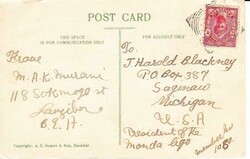 POST CARD
THIS SPACE
IS FOR COMMUNICATION ONLY
FOR ADDRESS ONLY
From
M.A.K. Murani
118 Sokomogo st
Zanzibar
B.E.A.
To,
J. Harold Blackney
P.O Box 387
Saginaw
Michigan
U.S.A
President of the
Monda Ligo